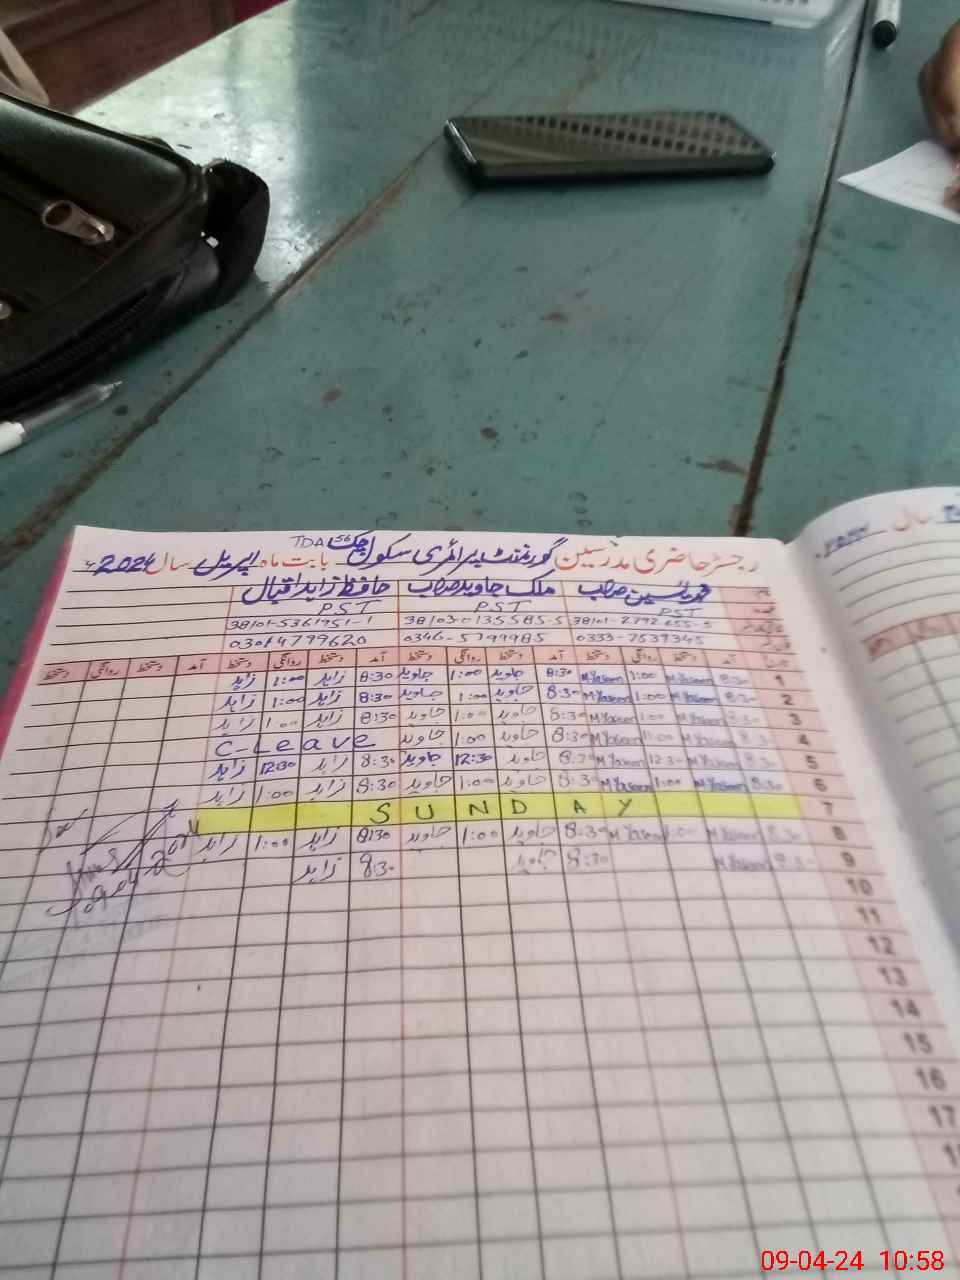 رجسٹر حاضری مدرسین گورنمنٹ پرائمری سکول چک 56 TDA بابت ماہ اپریل سال 2024ء
محمد یاسین صاحب ملک جاوید صاحب حافظ زاہد اقبال
PST PST PST
38101-2792655-5 38103-0135585-5 38101-5361951-1
0333-7539345 0346-5799985 03014799620
آمد دستخط روانگی دستخط آمد دستخط روانگی دستخط آمد دستخط روانگی دستخط آمد دستخط روانگی دستخط
1 8:30 M Yaseen 1:00 M Yaseen 8:30 جاوید 1:00 جاوید 8:30 زاہد 1:00 زاہد
2 8:30 M Yaseen 1:00 M Yaseen 8:30 جاوید 1:00 جاوید 8:30 زاہد 1:00 زاہد
3 8:30 M Yaseen 1:00 M Yaseen 8:30 جاوید 1:00 جاوید 8:30 زاہد 1:00 زاہد
4 8:30 M Yaseen 1:00 M Yaseen 8:30 جاوید 1:00 جاوید C-Leave
5 8:30 M Yaseen 12:30 M Yaseen 8:30 جاوید 12:30 جاوید 8:30 زاہد 12:30 زاہد
6 8:30 M Yaseen 1:00 M Yaseen 8:30 جاوید 1:00 جاوید 8:30 زاہد 1:00 زاہد
7 SUNDAY
8 8:30 M Yaseen 1:00 M Yaseen 8:30 جاوید 1:00 جاوید 8:30 زاہد 1:00 زاہد
9 8:30 M Yaseen 8:30 جاوید 8:30 زاہد
10
11
12
13
14
15
16
17
سال
09-04-24 10:58